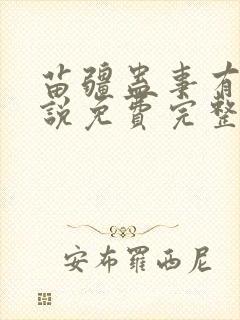 苗疆蛊事有
説免费完整
安布羅西尼